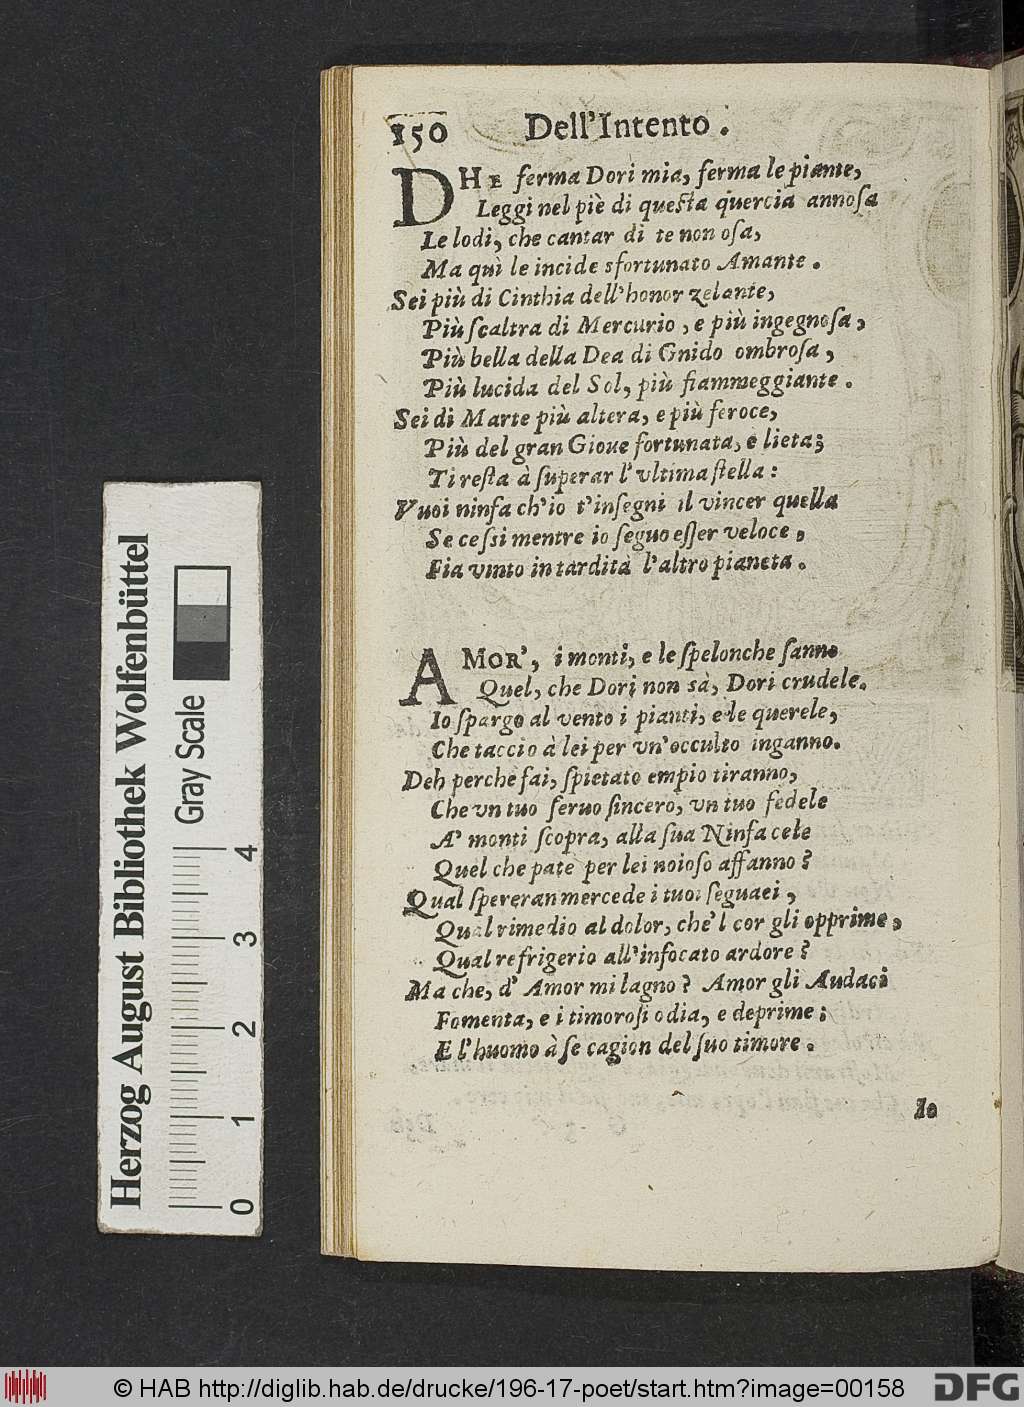 150 Dell'Intento.
DHE ferma Dori mia, ferma le piante,
Leggi nel piè di queſta quercia annoſa
Le lodi, che cantar di te non oſa,
Ma quì le incide sfortunato Amante.
Sei più di Cinthia dell'honor zelante,
Più ſcaltra di Mercurio, e più ingegnoſa,
Più bella della Dea di Gnido ombroſa,
Più lucida del Sol, più fiammeggiante.
Sei di Marte più altera, e più feroce,
Più del gran Gioue fortunata, e lieta;
Ti reſta à ſuperar l'vltima ſtella:
Vuoi ninfa ch'io t'inſegni il vincer quella
Se ceſsi mentre io ſeguo eſſer veloce,
Fia vinto in tardità l'altro pianeta.
AMOR', i monti, e le ſpelonche ſanno
Quel, che Dori non sà, Dori crudele.
Io ſpargo al vento i pianti, e le querele,
Che taccio à lei per vn'occulto inganno.
Deh perche fai, ſpietato empio tiranno,
Che vn tuo ſeruo ſincero, vn tuo fedele
A' monti ſcopra, alla ſua Ninfa cele
Quel che pate per lei noioſo affanno?
Qual ſpereran mercede i tuoi ſeguaci,
Qual rimedio al dolor, che'l cor gli opprime,
Qual refrigerio all'infocato ardore?
Ma che, d'Amor mi lagno? Amor gli Audaci
Fomenta, e i timoroſi odia, e deprime;
E l'huomo à ſe cagion del ſuo timore.
Io
Herzog August Bibliothek Wolfenbüttel
Gray Scale
0 1 2 3 4
© HAB http://diglib.hab.de/drucke/196-17-poet/start.htm?image=00158
DFG